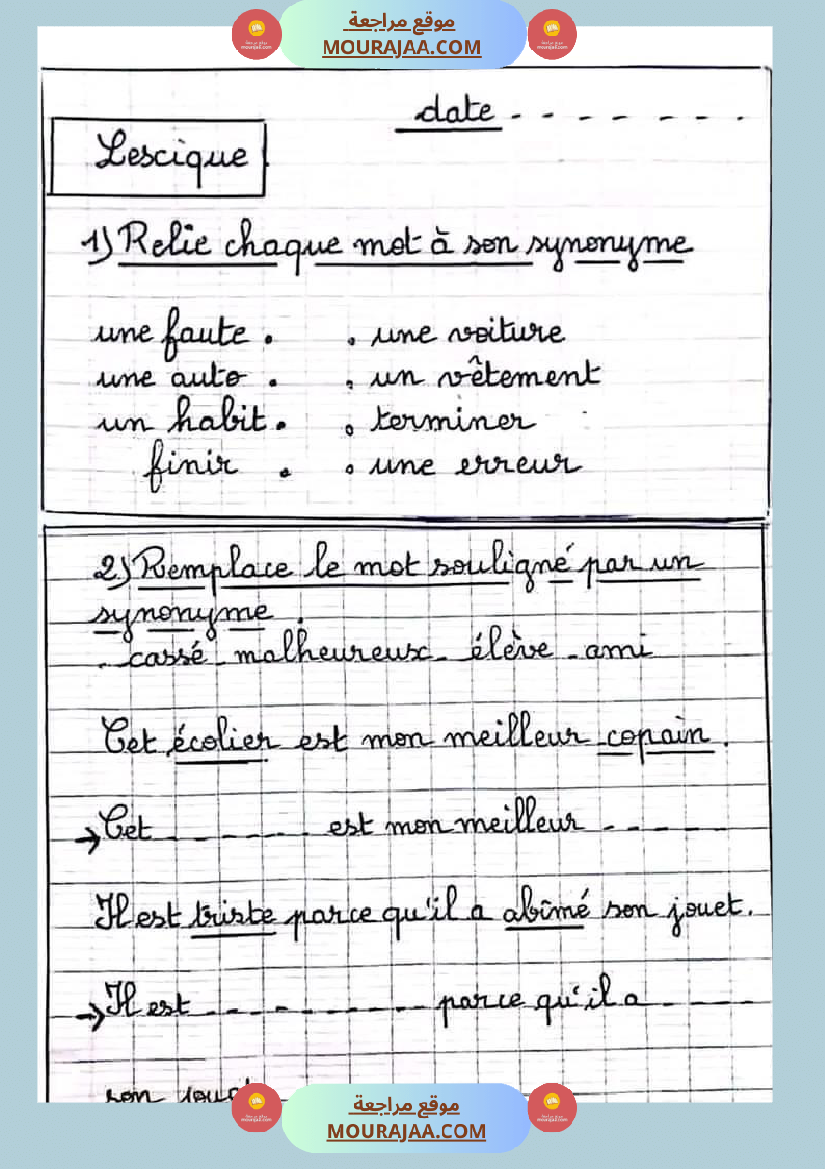 موقع مراجعة
MOURAJAA.COM
date . - - - - - .
Lescique
1) Relie chaque mot à son synonyme
une faute . . une voiture
une auto . . un vêtement
un habit . . terminer
finir . . une erreur
2) Remplace le mot souligné par un
synonyme .
. cassé - malheureux - élève - ami
Cet écolier est mon meilleur copain .
→ Cet - - - - - - est mon meilleur - - - - -
Il est triste parce qu'il a abîmé son jouet .
→ Il est - - - - - - - - - parce qu'il a - - - - -
son jouet
موقع مراجعة
MOURAJAA.COM